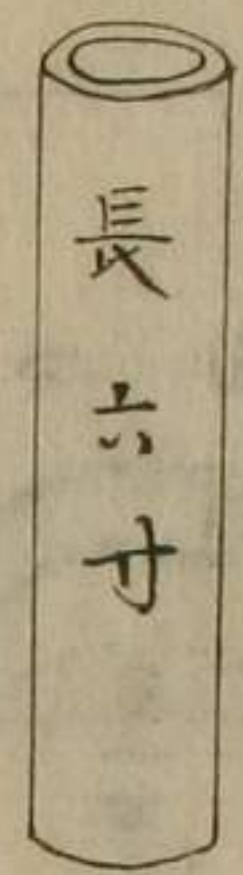 長六寸